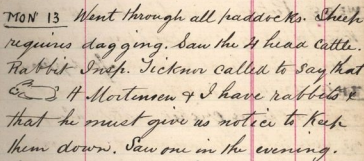 MON 13 Went through all paddocks. Sheep
requires dagging. Saw the 4 head cattle.
Rabbit Insp. Ticknor called to say that
H Mortensen & I have rabbits &
that he must give us notice to Keep
them down. Saw one in the evening.